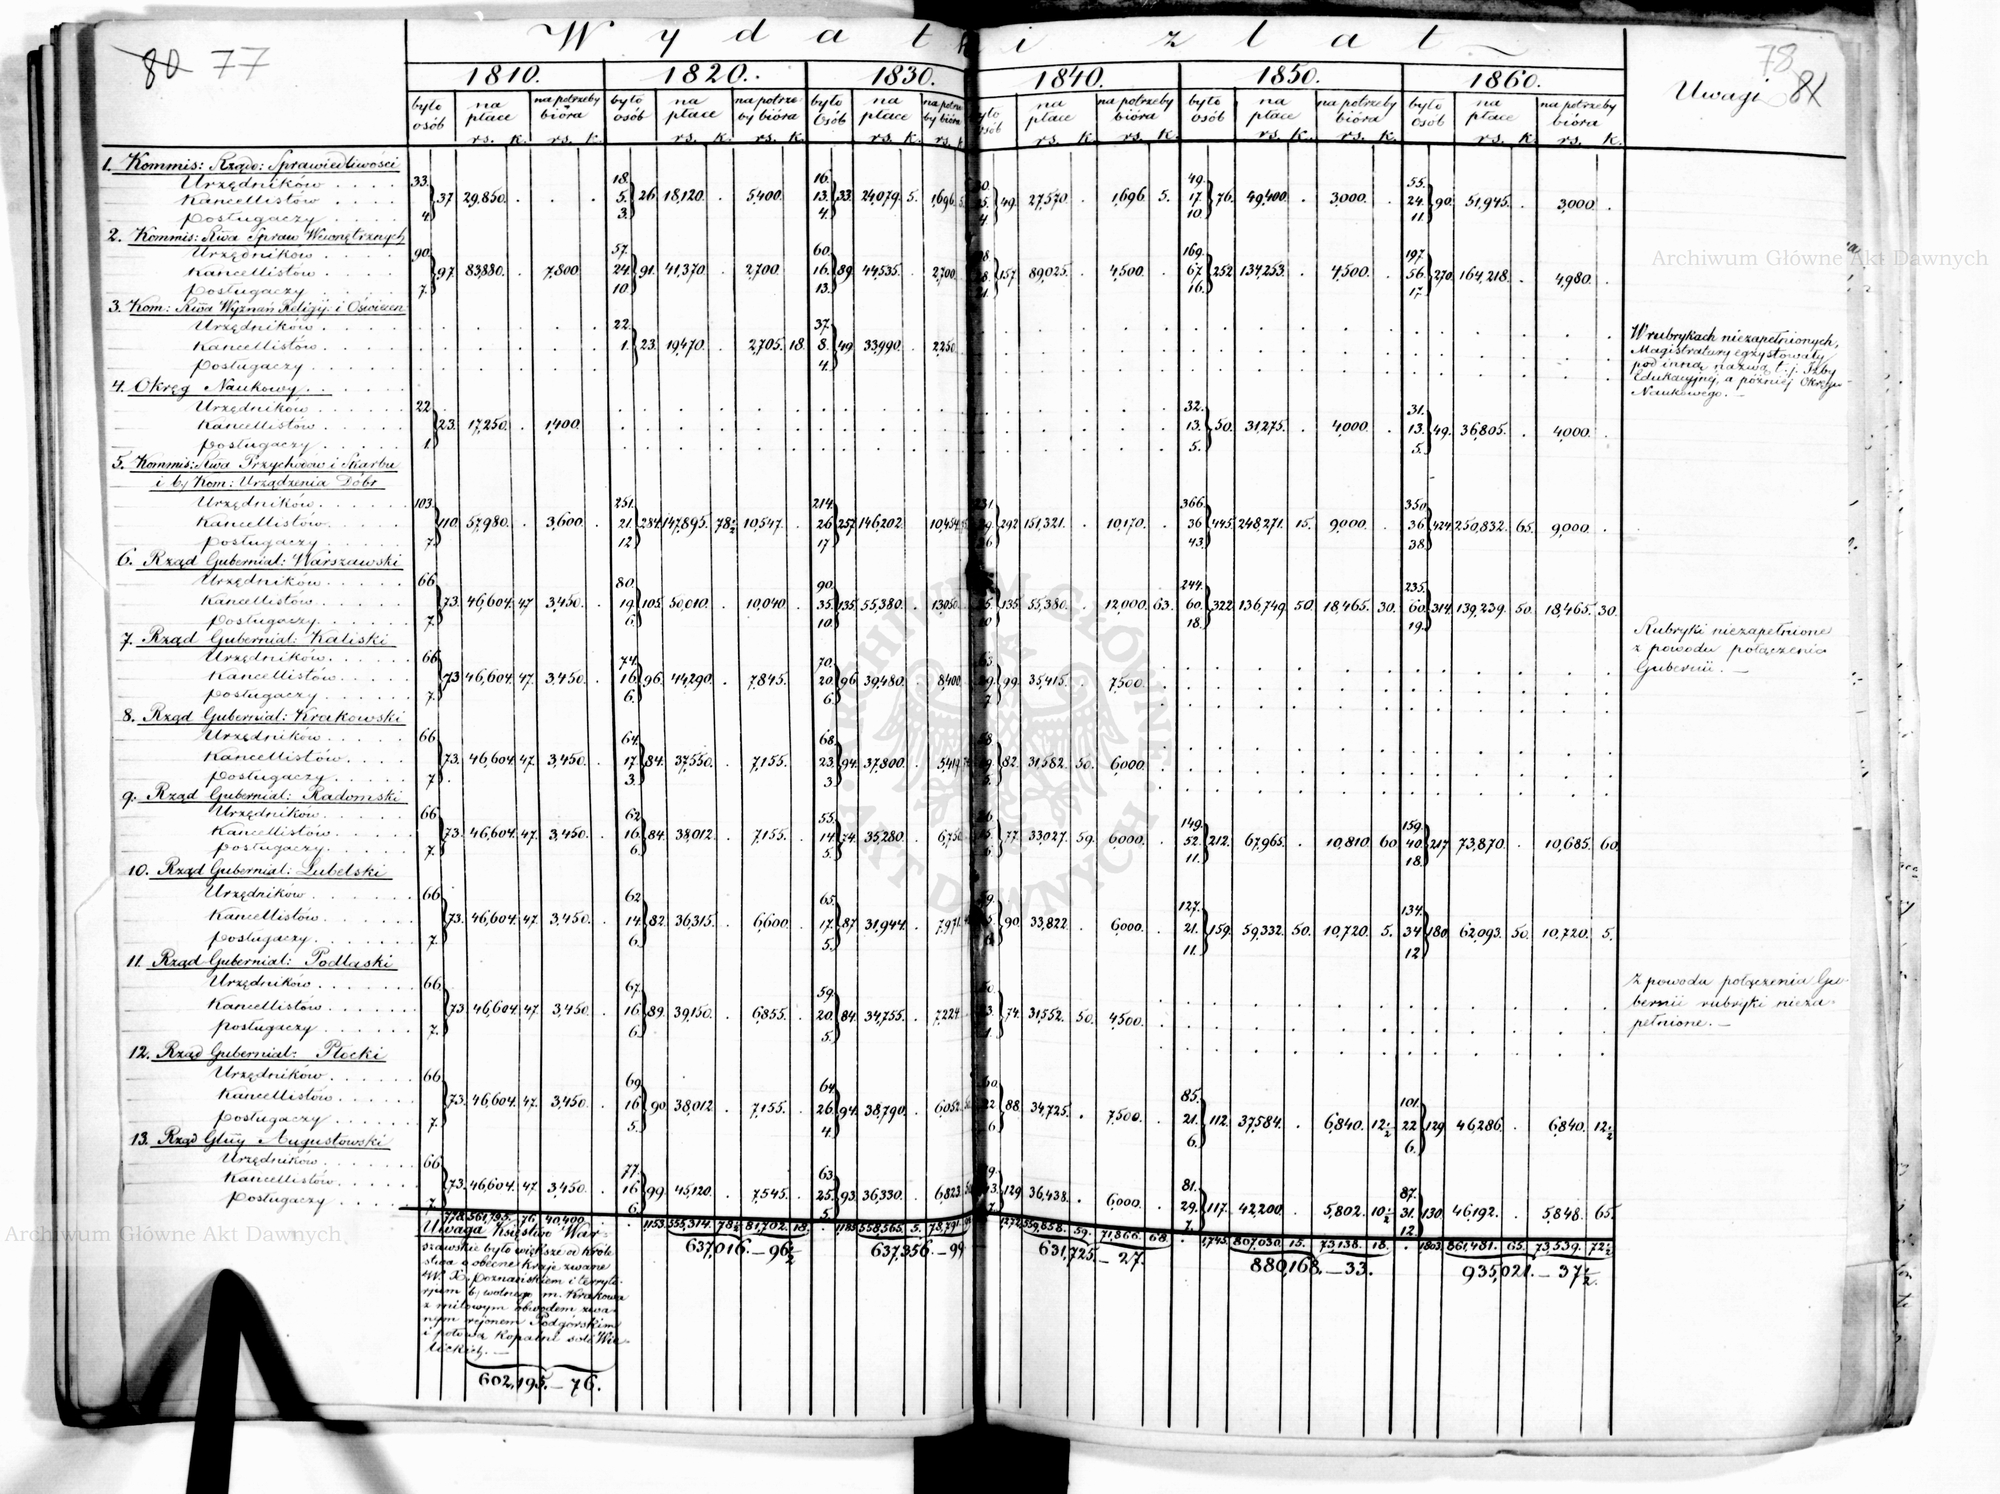 80 77
Wydatki z lat
78 81
1810. 1820. 1830. 1840. 1850. 1860. Uwagi
było osób na płace rs. k. na potrzeby bióra rs. k. było osób na płace rs. k. na potrzeby bióra rs. k. było osób na płace rs. k. na potrzeby bióra rs. k. na płace rs. k. na potrzeby bióra rs. k. było osób na płace rs. k. na potrzeby bióra rs. k. było osób na płace rs. k. na potrzeby bióra rs. k.
1. Kommis: Rządo: Sprawiedliwości
Urzędników 33. 18. 16. 49. 55.
Kancellistów 37 29,850. 5. 26. 18,120. 5,400. 13. 33. 24,079. 5. 1,696. 49. 27,570. 1,696. 5. 17. 76. 49,400. 3,000. 24. 90. 51,945. 3,000.
Posługaczy 4. 3. 4. 4. 10. 11.
2. Kommis: Rwa Spraw Wewnętrznych
Urzędników 90. 57. 60. 169. 197.
Kancellistów 97. 83,880. 7,800. 24. 91. 41,370. 2,700. 16. 89. 44,535. 2,700. 157. 89,025. 4,500. 67. 252. 134,253. 4,500. 56. 270. 164,218. 4,980.
Posługaczy 7. 10. 13. 16. 17.
3. Kom: Rwa Wyznań Religij: i Oświecen
Urzędników 22. 37.
Kancellistów 1. 23. 19,470. 2,705. 18. 8. 49. 33,990. 2,250.
Posługaczy 4.
W rubrykach niezapełnionych,
Magistratury egzystowały
pod inną nazwą t.j. Izby
Edukacyjnej, a później Okręgu
Naukowego. —
4. Okręg Naukowy
Urzędników 22. 32. 31.
Kancellistów 23. 17,250. 1,400. 13. 50. 31,275. 4,000. 13. 49. 36,805. 4,000.
Posługaczy 1. 5. 5.
5. Kommis: Rwa Przychodów i Skarbu
i by Kom: Urządzenia Dóbr
Urzędników 103. 251. 214. 366. 350.
Kancellistów 110. 57,980. 3,600. 21. 284. 147,895. 78½ 10,547. 26. 257. 146,202. 10,454. 292. 151,321. 10,170. 36. 445. 248,271. 15. 9,000. 36. 424. 250,832. 65. 9,000.
Posługaczy 7. 12. 17. 43. 38.
6. Rząd Gubernial: Warszawski
Urzędników 66. 80. 90. 244. 235.
Kancellistów 73. 46,604. 47. 3,450. 19. 105. 50,010. 10,040. 35. 135. 55,380. 13,050. 135. 55,380. 12,000. 63. 60. 322. 136,749. 50. 18,465. 30. 60. 314. 139,239. 50. 18,465. 30.
Posługaczy 7. 6. 10. 18. 19.
7. Rząd Gubernial: Kaliski
Urzędników 66. 74. 70.
Kancellistów 73. 46,604. 47. 3,450. 16. 96. 44,290. 7,845. 20. 96. 39,480. 8,400. 99. 35,415. 7,500.
Posługaczy 7. 6. 6. 7.
Rubryki niezapełnione
z powodu połączenia
Gubernii. —
8. Rząd Gubernial: Krakowski
Urzędników 66. 64. 68.
Kancellistów 73. 46,604. 47. 3,450. 17. 84. 37,550. 7,155. 23. 94. 37,800. 82. 31,582. 50. 6,000.
Posługaczy 7. 3. 3. 5.
9. Rząd Gubernial: Radomski
Urzędników 66. 62. 55. 149. 159.
Kancellistów 73. 46,604. 47. 3,450. 16. 84. 38,012. 7,155. 14. 74. 35,280. 6,750. 77. 33,027. 59. 6,000. 52. 212. 67,965. 10,810. 60. 40. 217. 73,870. 10,685. 60.
Posługaczy 7. 6. 5. 6. 11. 18.
10. Rząd Gubernial: Lubelski
Urzędników 66. 62. 65. 127. 134.
Kancellistów 73. 46,604. 47. 3,450. 14. 82. 36,315. 6,600. 17. 87. 31,944. 90. 33,822. 6,000. 21. 159. 59,332. 50. 10,720. 5. 34. 180. 62,093. 50. 10,720. 5.
Posługaczy 7. 6. 5. 11. 12.
11. Rząd Gubernial: Podlaski
Urzędników 66. 67. 59.
Kancellistów 73. 46,604. 47. 3,450. 16. 89. 39,150. 6,855. 20. 84. 34,755. 7,224. 74. 31,552. 50. 4,500.
Posługaczy 7. 6. 5.
Z powodu połączenia Gu-
bernii rubryki nieza-
pełnione. —
12. Rząd Gubernial: Płocki
Urzędników 66. 69. 64. 85. 101.
Kancellistów 73. 46,604. 47. 3,450. 16. 90. 38,012. 7,155. 26. 94. 38,790. 6,052. 88. 34,725. 7,500. 21. 112. 37,584. 6,840. 12½ 22. 129. 46,286. 6,840. 12½
Posługaczy 7. 5. 4. 6. 6. 6.
13. Rząd Glny Augustowski
Urzędników 66. 77. 63. 81. 87.
Kancellistów 73. 46,604. 47. 3,450. 16. 99. 45,120. 7,545. 25. 93. 36,330. 6,823. 129. 36,438. 6,000. 29. 117. 42,200. 5,802. 10½ 31. 130. 46,192. 5,848. 65.
Posługaczy 7. 6. 5. 7. 7. 12.
778. 561,795. 76. 40,400. 1153. 555,314. 78½ 81,702. 18. 558,565. 5. 78,791. 1272. 559,858. 59. 71,866. 68. 1,745. 807,030. 15. 73,138. 18. 1803. 861,481. 65. 73,539. 72½
637,016. — 96½ 637,356. — 99 631,725. — 27. 880,168. — 33. 935,021. — 37½.
Uwaga Księstwo War-
szawskie było większe od Króle-
stwa o obecne kraje zwane
W. X. Poznańskiem i terryto-
rjum by wolnego m. Krakowa
z milowym obwodem zwa-
nym rejonem Podgórskim
i połową kopalni soli Wie-
lickich. —
602,195. — 76.
Archiwum Główne Akt Dawnych
Archiwum Główne Akt Dawnych
ARCHIWUM GŁÓWNE AKT DAWNYCH